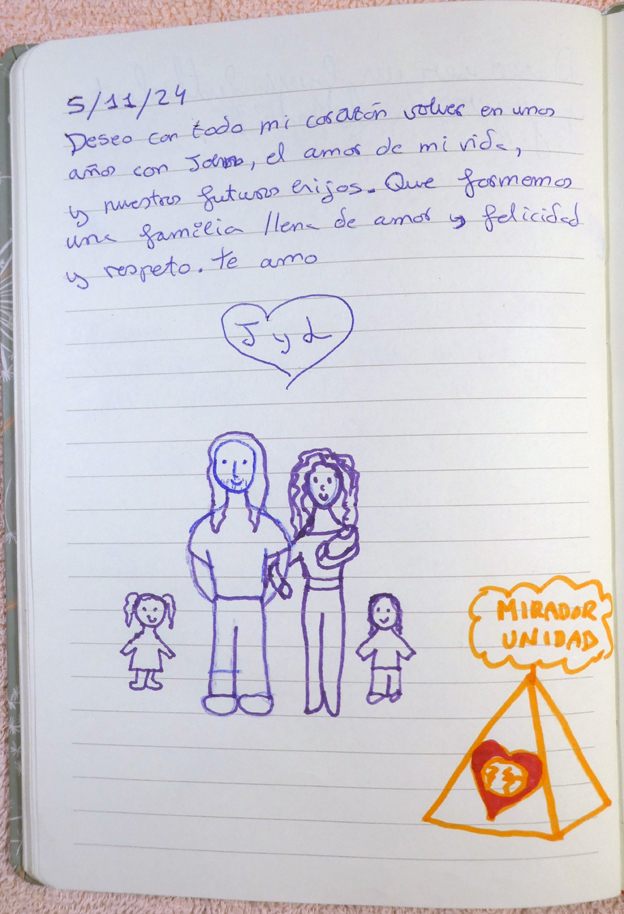 5/11/24
Deseo con todo mi corazón volver en unos
años con, el amor de mi vida,
y nuestros futuros hijos. Que formemos
una familia llena de amor y felicidad
y respeto. te amo
J y L
MIRADOR
UNIDAD